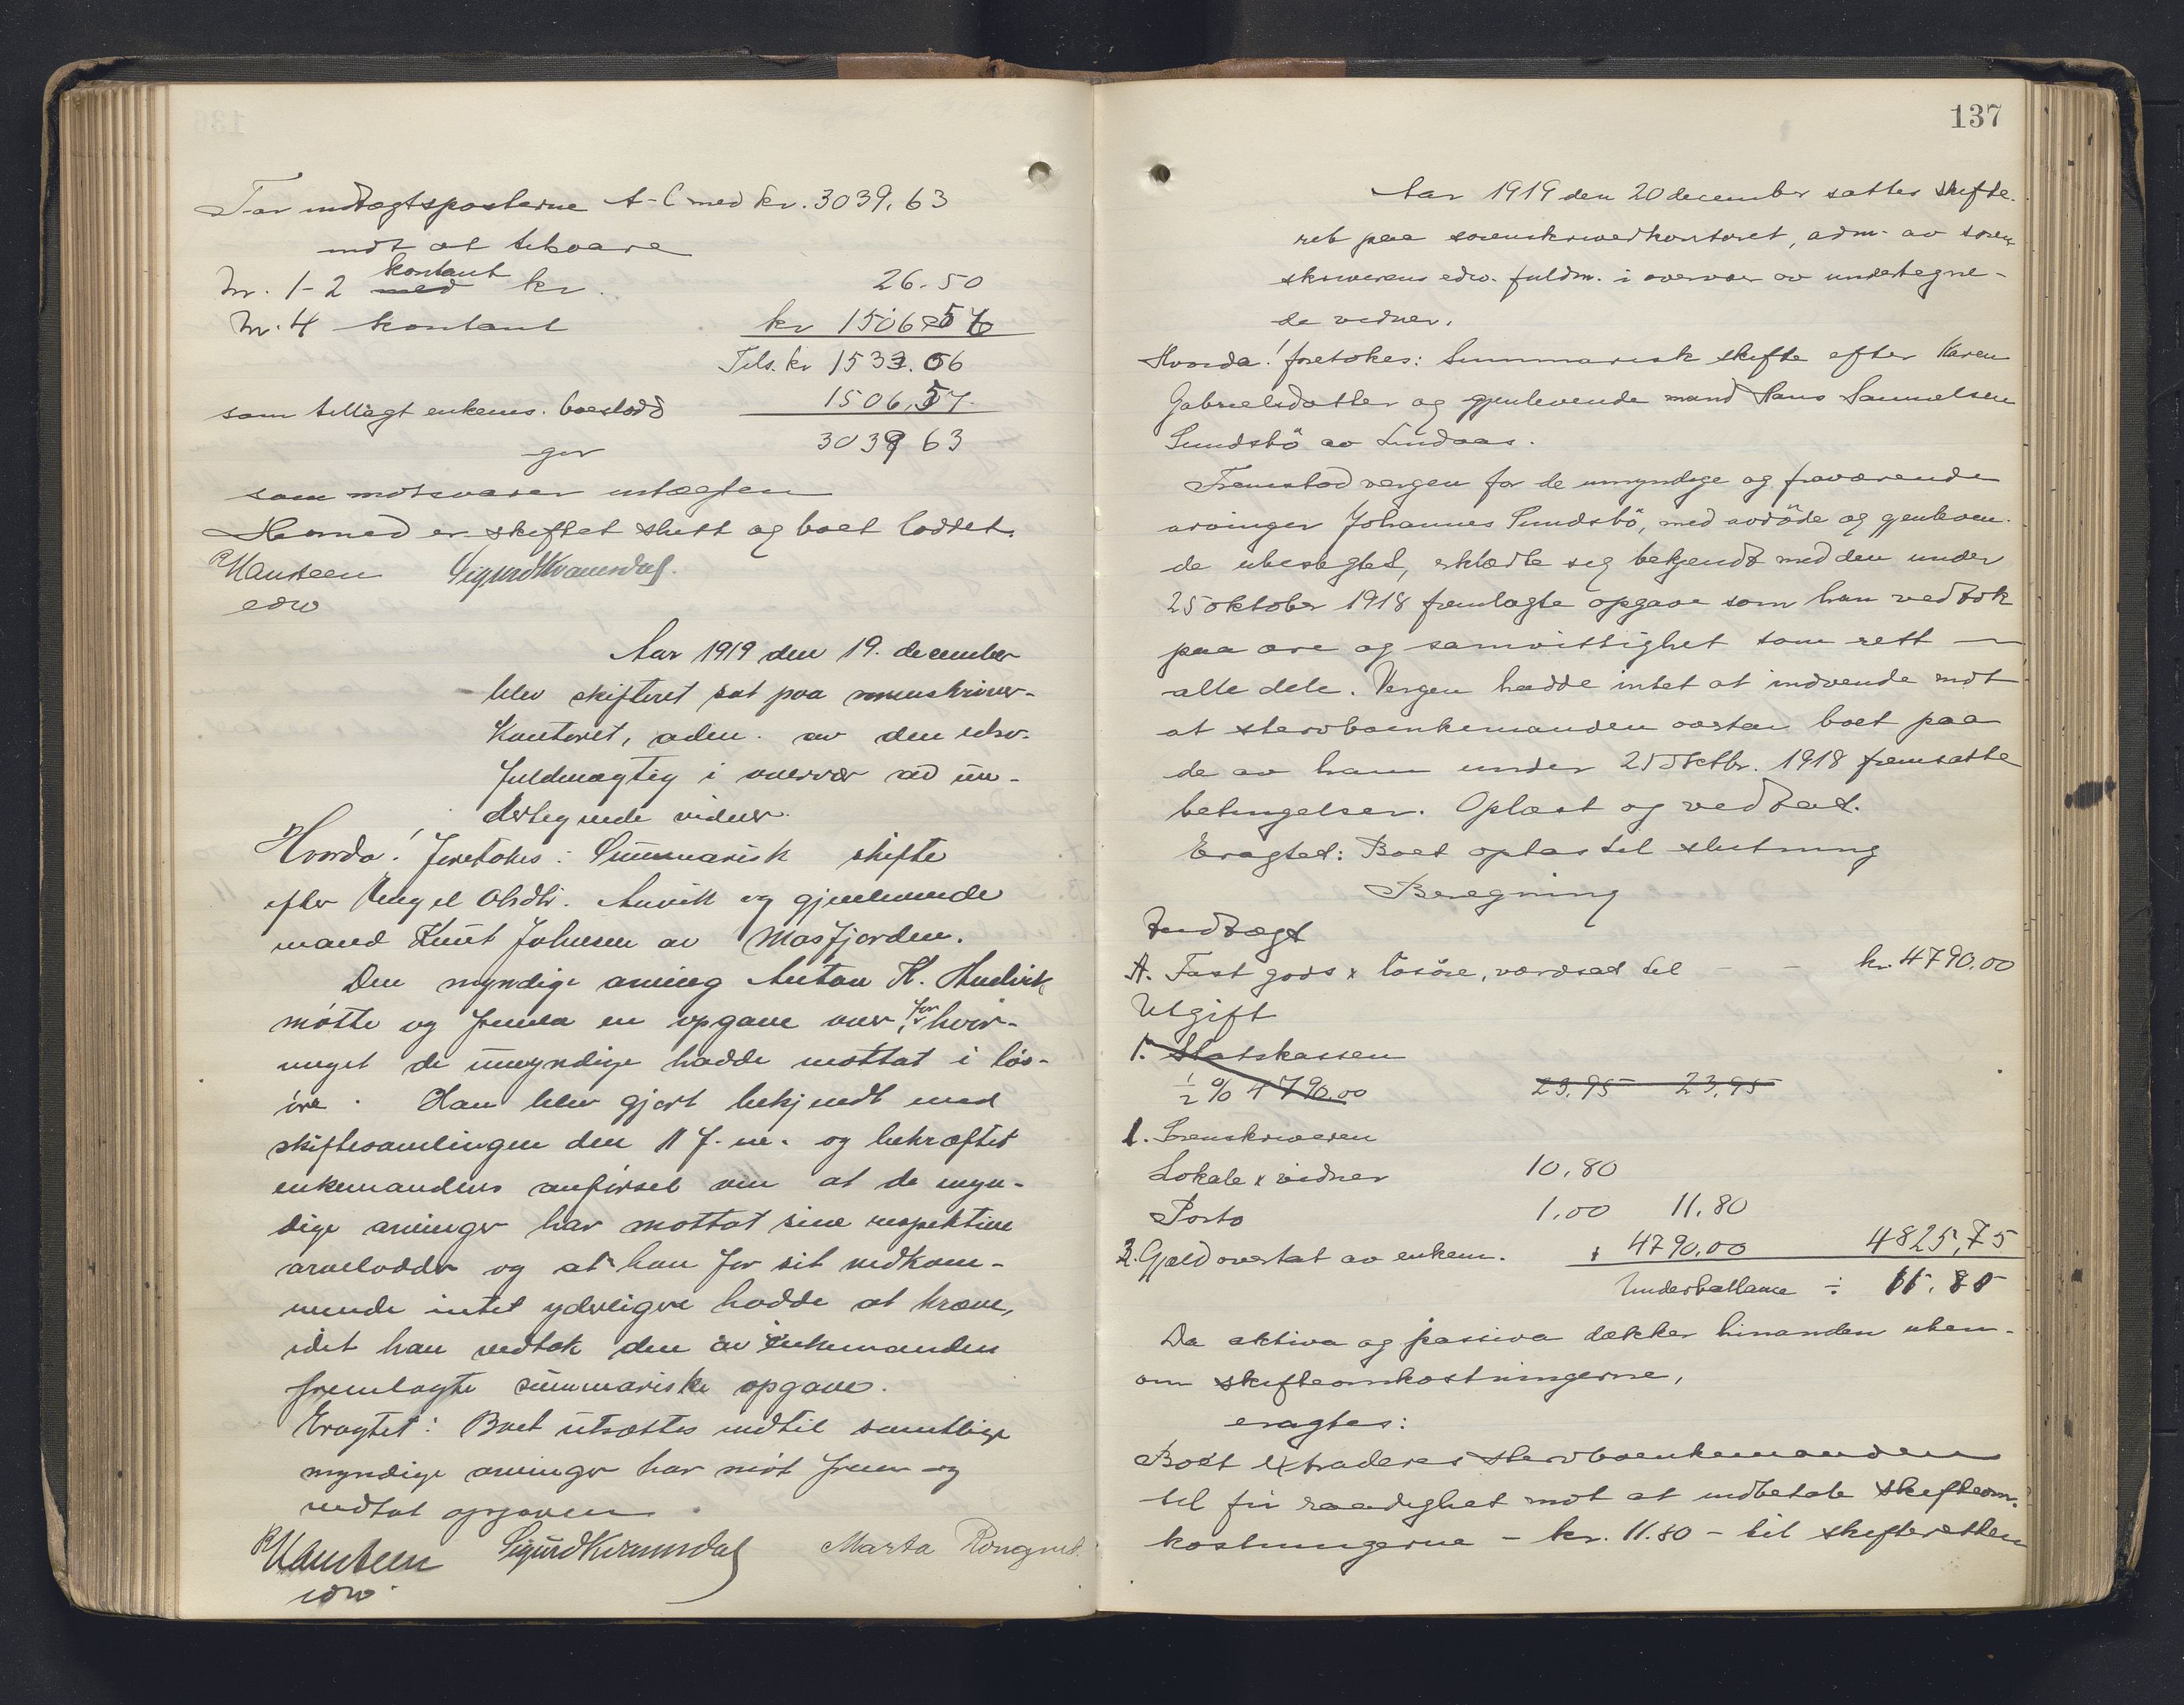 Tar indtægtsposterne A-C med kr. 3039,63
mot at tilsvare
Nr. 1-2 kontant kr. 26.50
Nr. 4 kontant kr 1506,57
Tils. kr 1533.06
som tillagt enkems. boeslodd 1506,57
gir 3039 63
som motsvarer indtægten
Hermed er skiftet slutt og boet loddet.
R Hansteen Sigurd Kvamsdal.
edw
Aar 1919 den 19. december
blev skifteret sat paa sorenskriver-
kontoret, adm. av den edsv.
fuldmægtig i overvær av un-
dertegnede vidner.
Hvorda! foretokes: Summarisk skifte
efter Engel Olsdtr. Anvik og gjenlevende
mand Knut Johnsen av Masfjorden.
Den myndige arving Anton K. Andvik
møtte og fremla en opgave over, for hvor-
meget de umyndige hadde mottat i løs-
øre. Han blev gjort bekjendt med
skiftesamlingen den 11 f. m. og bekræftet
enkemandens anførsel om at de myn-
dige arvinger har mottat sine respektive
arvelodder og at han for sit vedkom-
mende intet yderligere hadde at kræve,
idet han vedtok den av enkemanden
fremlagte summariske opgave.
Eragtet: Boet utsættes indtil samtlige
myndige arvinger har møt frem og
vedtat opgaven.
R Hansteen Sigurd Kvamsdal Marta
edw.
137
Aar 1919 den 20 december sattes skifte-
ret paa sorenskriverkontoret, adm. av soren-
skriverens edsv. fuldm. i overvær av undertegne-
de vidner.
Hvorda! foretokes: Summarisk skifte efter Karen
Gabrielsdatter og gjenlevende mand Hans Samuelsen
Sundsbö av Lindaas.
Fremstod vergen for de umyndige og fraværende
arvinger Johannes Sundsbö, med avdöde og gjenleven-
de ubeslegtet, erklærte sig bekjendt med den under
25 oktober 1918 fremlagte opgave som han vedtok
paa ære og samvittighet som rett i
alle dele. Vergen hadde intet at indvende mot
at stervboenkemanden overtar boet paa
de av ham under 25 oktbr. 1918 fremsatte
betingelser. Oplæst og vedtat.
Eragtet: Boet optas til slutning
Beregning
Indtægt
A. Fast gods & løsøre, værdsat til - - kr. 4790.00
Utgift
1. Statskassen
1/2 % 4790.00 23,95 23,95
1. Sorenskriveren
Lokale & vidner 10,80
Porto 1,00 11,80
2. Gjæld overtat av enkem. 4790,00 4825,75
Underballance ÷ 11.80
Da aktiva og passiva dækker hinanden uten-
om skifteomkostningerne,
eragtes:
Boet extraderes stervboenkemanden
til fri raadighet mot at indbetale skifteom-
kostningerne - kr. 11.80 - til skifteretten